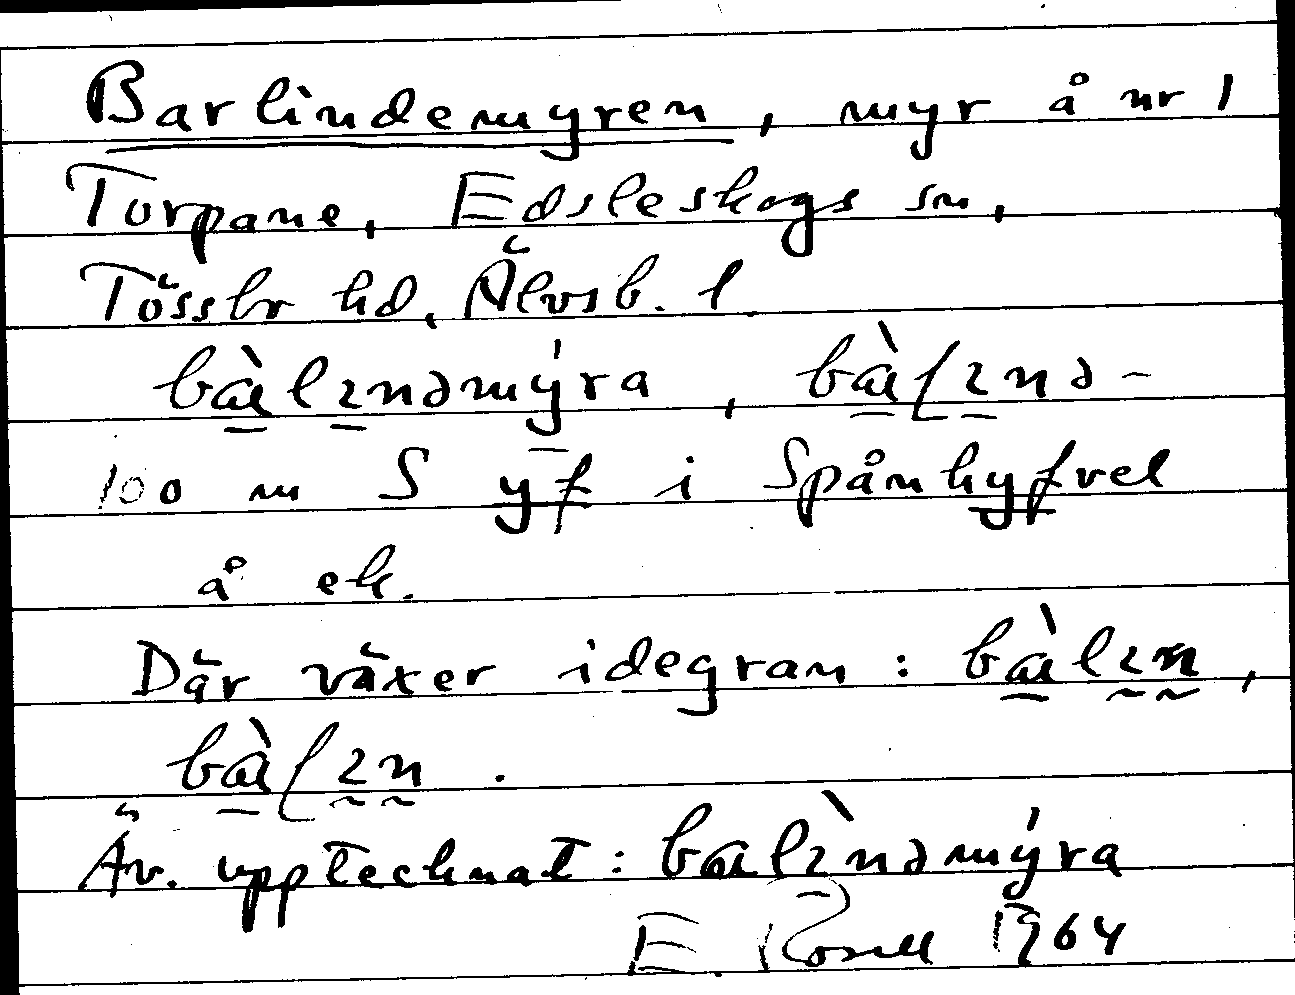 Barlindemyren, myr å nr 1
Torpane, Edsleskogs sn,
Tössbr hd, Älvsb. l.
bàlɪnəmýra, bàɭɪnə-
100 m S yf i Spånhyfvel
å ek.
Där växer idegran: bàlɪn,
bàɭɪn.
Äv. upptecknat: balɪ̀nəmýra
E. Rosell 1964